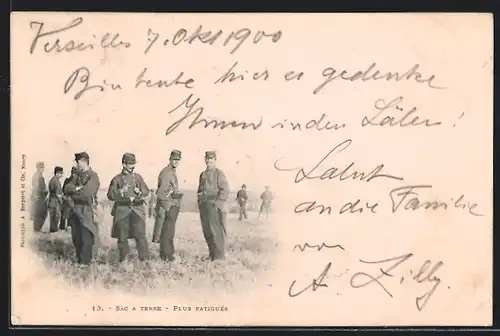 Versailles 7. Okt 1900
Bin heute hier es gedenke
Ihnen in den
Salut
an die Familie
von
A. Zilly.
Phototypie A. Bergeret et Cie, Nancy
13. - SAC A TERRE - PLUS FATIGUÉS